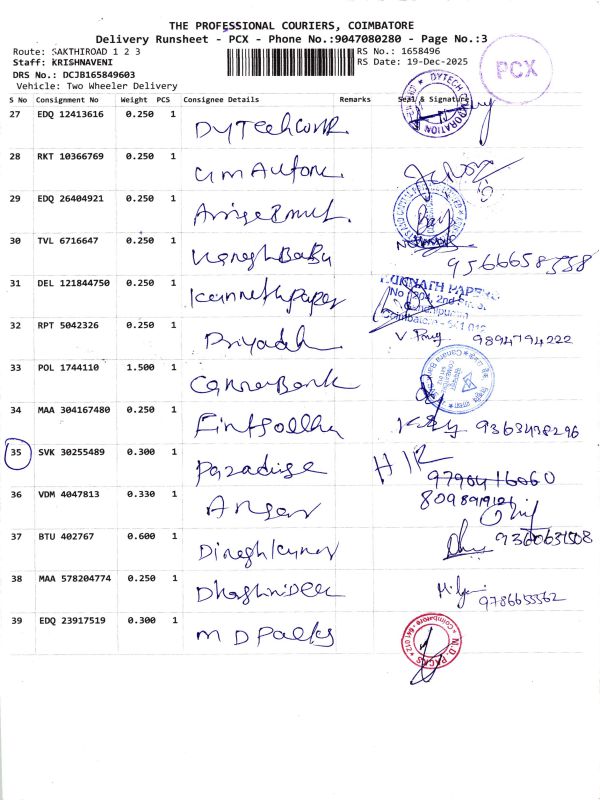 THE PROFESSIONAL COURIERS, COIMBATORE
Delivery Runsheet - PCX - Phone No.:9047080280 - Page No.:3
Route: SAKTHIROAD 1 2 3
RS No.: 1658496
Staff: KRISHNAVENI
RS Date: 19-Dec-2025
DRS No.: DCJB165849603
Vehicle: Two Wheeler Delivery
PCX
S No Consignment No Weight PCS Consignee Details Remarks Seal & Signature
27 EDQ 12413616 0.250 1
DYTECH CORPORATION
28 RKT 10366769 0.250 1
29 EDQ 26404921 0.250 1
30 TVL 6716647 0.250 1 NareshBabu
9566658558
31 DEL 121844750 0.250 1
No 204, 2nd Street
Coimbatore - 641 012
32 RPT 5042326 0.250 1 Priyadh
9894794222
33 POL 1744110 1.500 1 CanaraBank
Canara Bank
34 MAA 304167480 0.250 1
9363438296
35 SVK 30255489 0.300 1 Paradise H/R
9790416060
8098919121
36 VDM 4047813 0.330 1 Ansar
37 BTU 402767 0.600 1 Dineshkumar
38 MAA 578204774 0.250 1
9786655562
39 EDQ 23917519 0.300 1 M D Packs
M.D. PACKS
Coimbatore - 641 012